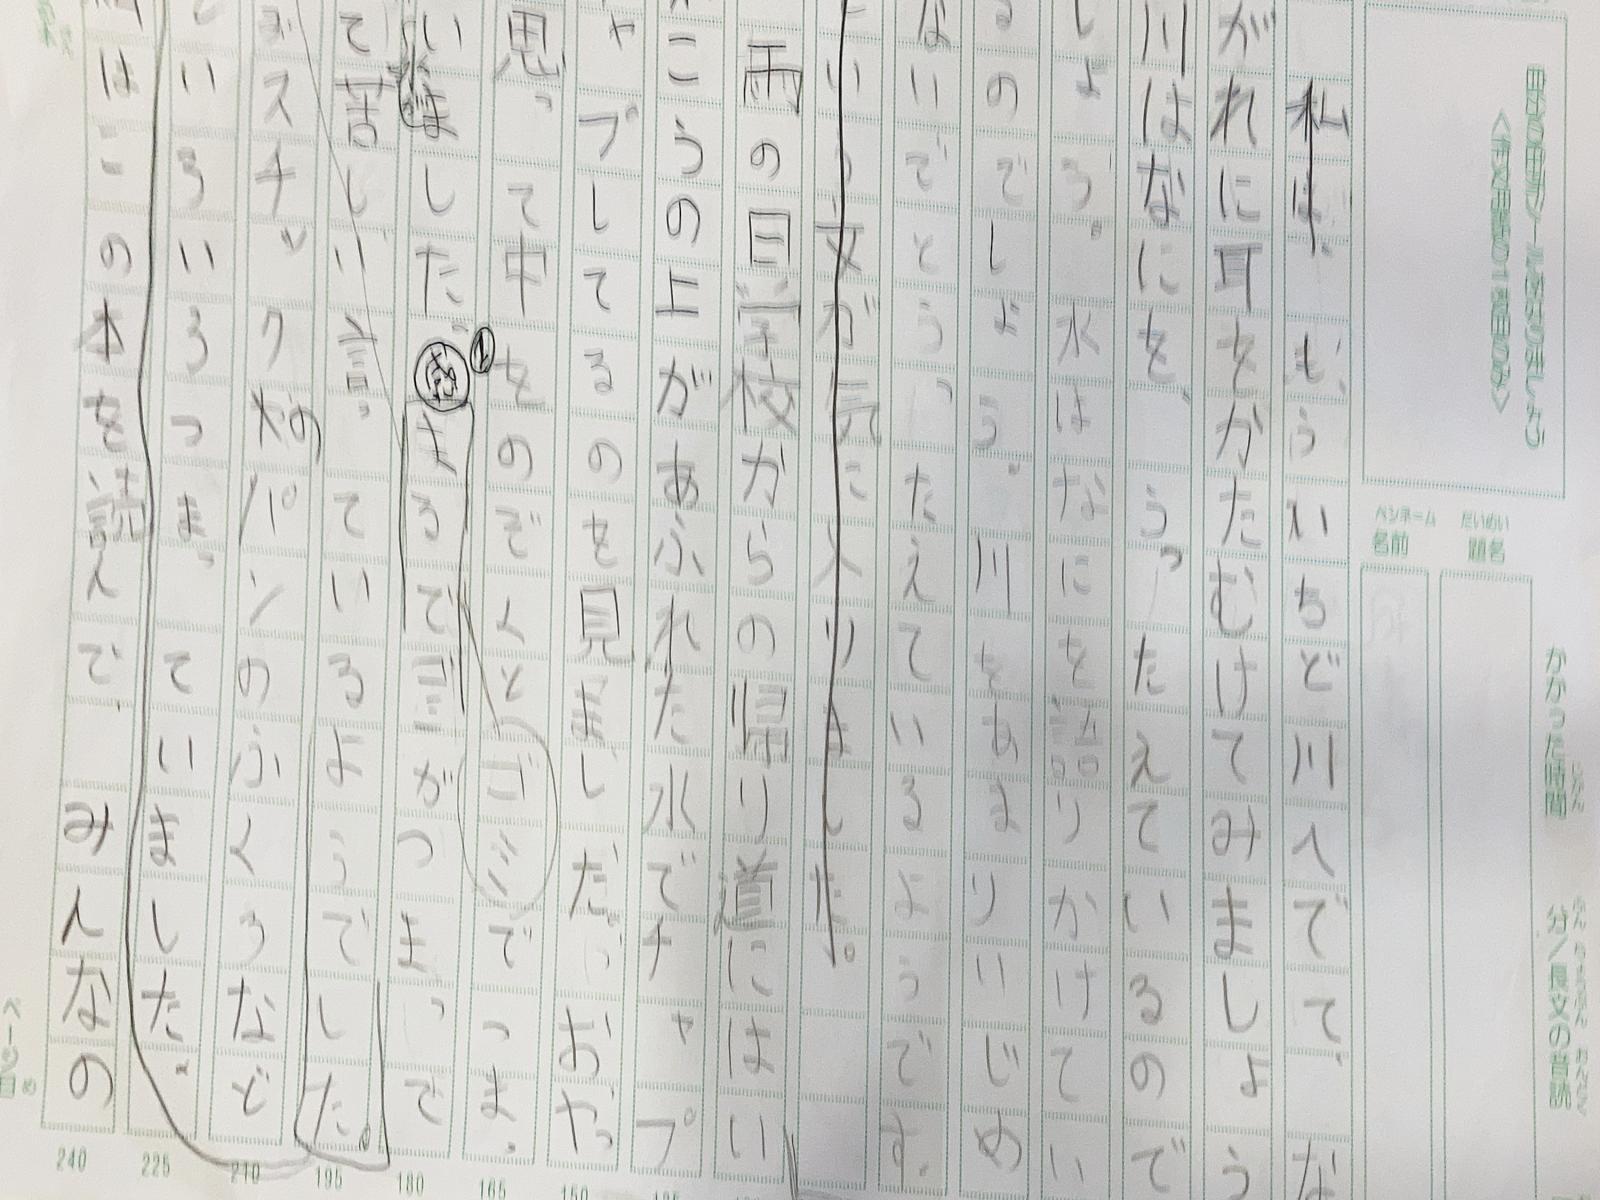 自分の目標シールをはりましょう
<作文用紙の1枚目のみ>
ペンネーム
名前
だいめい
題名
かかった時間
分/長文の音読
私は、もういちど川へでて、な
がれに耳をかたむけてみましょう
川はなにを、うったえているので
しょう。水はなにを語りかけてい
るのでしょう。川をあまりいじめ
ないでとうったえているようです。
いう文が気に入りました。
雨の日学校からの帰り道にはい
こうの上があふれた水でチャプ
ャプしてるのを見ましだ。おや
思って中をのぞくとゴミでつま
いました。まるで言がつまって
て苦しい言っているようでした。
スチックのパンのふくろなど
いろいろつまっていました。
はこの本を読んで、みんなの
240
225
210
195
180
165
150
ページ目